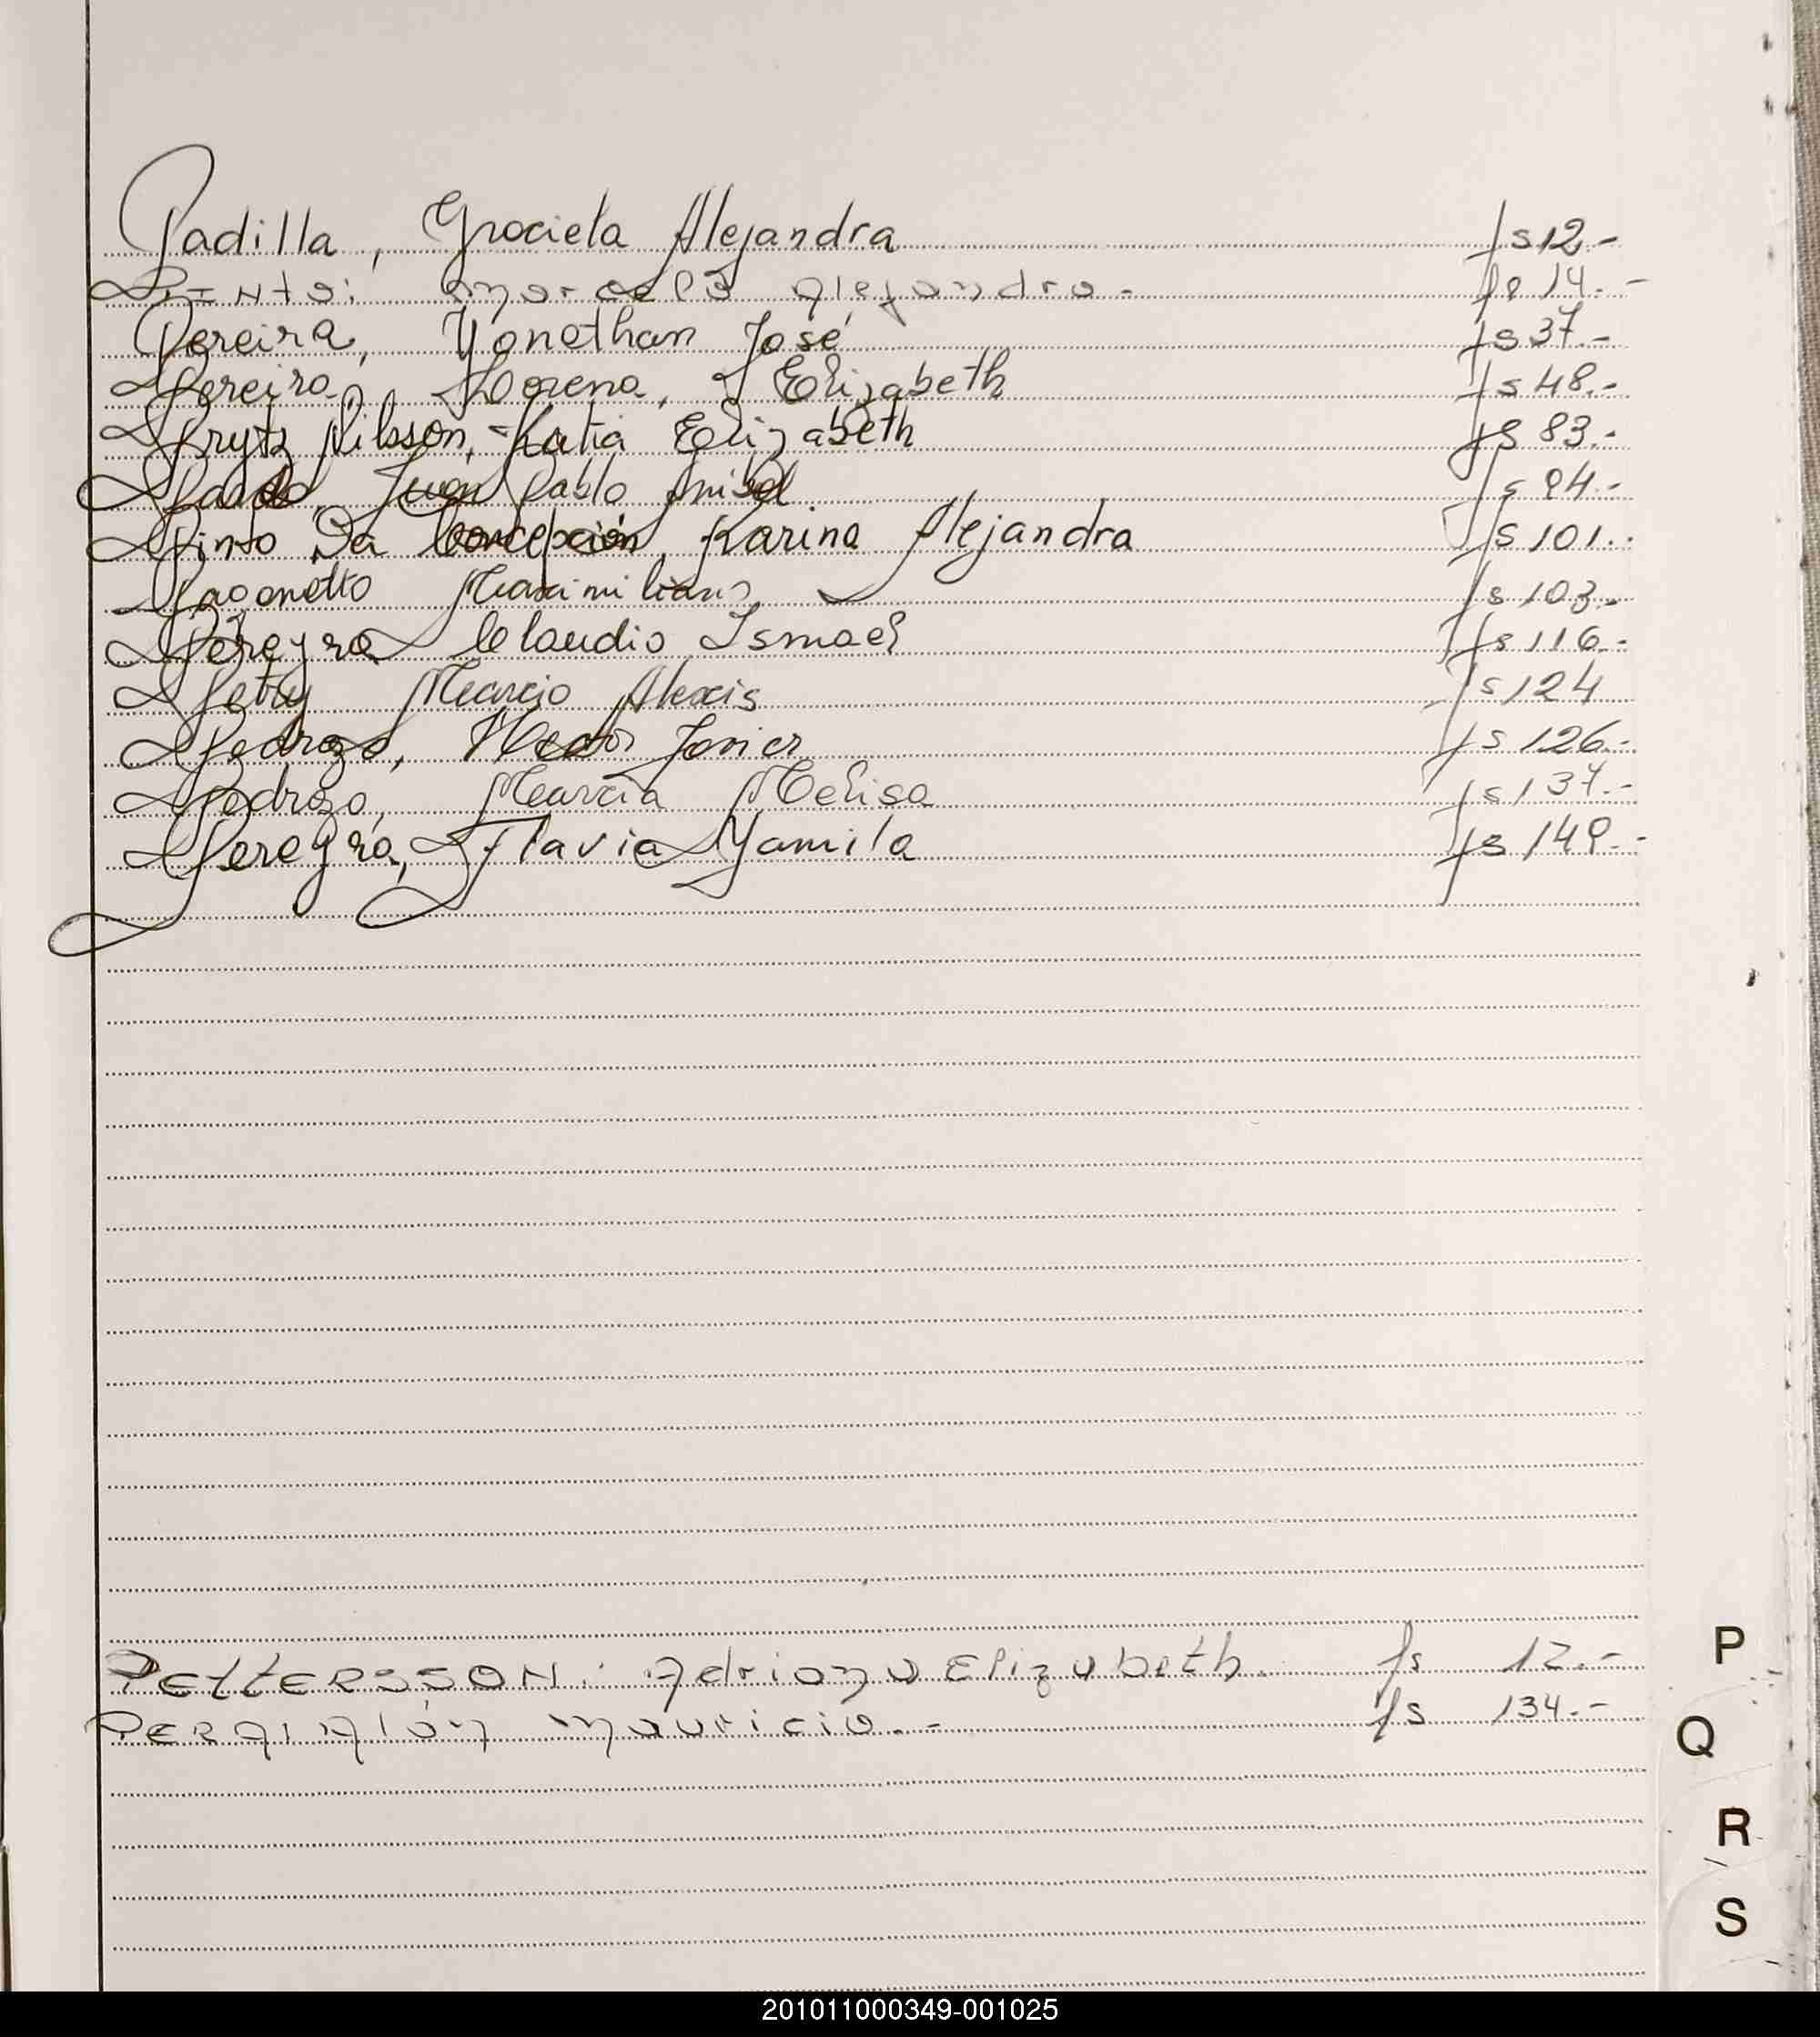 Padilla, Graciela Alejandra fs 12.-
Pinto: Marcelo Alejandro.- fs 14.-
Pereira, Yonathan José fs 37.-
Pereira, Lorena, Elizabeth fs 48.-
Prytz Nilsson, Katia Elizabeth fs 83.-
Juan Pablo Anibal fs 94.-
Pinto Da Concepción, Karina Alejandra fs 101.-
Pagonetto Maximiliano fs 103.-
Pereyra Claudio Ismael fs 116.-
Petry Marcio Alexis fs 124
Pedrozo, Hector Javier fs 126.-
Pedrozo, Marcia Melisa fs 137.-
Pereyra, Flavia Yamila fs 149.-
PETTERSSON: Adriana Elizabeth. fs 12.-
Mauricio.- fs 134.-
P
Q
R
S
201011000349-001025